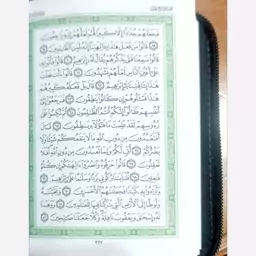 فَجَعَلَهُمْ جُذَٰذًا إِلَّا كَبِيرًا لَّهُمْ لَعَلَّهُمْ إِلَيْهِ يَرْجِعُونَ
قَالُوا۟ مَن فَعَلَ هَٰذَا بِـَٔالِهَتِنَآ إِنَّهُۥ لَمِنَ ٱلظَّٰلِمِينَ
قَالُوا۟ سَمِعْنَا فَتًى يَذْكُرُهُمْ يُقَالُ لَهُۥٓ إِبْرَٰهِيمُ قَالُوا۟ فَأْتُوا۟ بِهِۦ
عَلَىٰٓ أَعْيُنِ ٱلنَّاسِ لَعَلَّهُمْ يَشْهَدُونَ قَالُوٓا۟ ءَأَنتَ فَعَلْتَ
هَٰذَا بِـَٔالِهَتِنَا يَٰٓإِبْرَٰهِيمُ قَالَ بَلْ فَعَلَهُۥ كَبِيرُهُمْ
هَٰذَا فَسْـَٔلُوهُمْ إِن كَانُوا۟ يَنطِقُونَ فَرَجَعُوٓا۟ إِلَىٰٓ
أَنفُسِهِمْ فَقَالُوٓا۟ إِنَّكُمْ أَنتُمُ ٱلظَّٰلِمُونَ ثُمَّ نُكِسُوا۟ عَلَىٰ
رُءُوسِهِمْ لَقَدْ عَلِمْتَ مَا هَٰٓؤُلَآءِ يَنطِقُونَ قَالَ
أَفَتَعْبُدُونَ مِن دُونِ ٱللَّهِ مَا لَا يَنفَعُكُمْ شَيْـًٔا وَلَا
يَضُرُّكُمْ أُفٍّ لَّكُمْ وَلِمَا تَعْبُدُونَ مِن دُونِ ٱللَّهِ أَفَلَا
تَعْقِلُونَ قَالُوا۟ حَرِّقُوهُ وَٱنصُرُوٓا۟ ءَالِهَتَكُمْ إِن كُنتُمْ
فَٰعِلِينَ قُلْنَا يَٰنَارُ كُونِى بَرْدًا وَسَلَٰمًا عَلَىٰٓ إِبْرَٰهِيمَ
وَأَرَادُوا۟ بِهِۦ كَيْدًا فَجَعَلْنَٰهُمُ ٱلْأَخْسَرِينَ وَنَجَّيْنَٰهُ
وَلُوطًا إِلَى ٱلْأَرْضِ ٱلَّتِى بَٰرَكْنَا فِيهَا لِلْعَٰلَمِينَ وَوَهَبْنَا
لَهُۥٓ إِسْحَٰقَ وَيَعْقُوبَ نَافِلَةً وَكُلًّا جَعَلْنَا صَٰلِحِينَ
٣٢٧